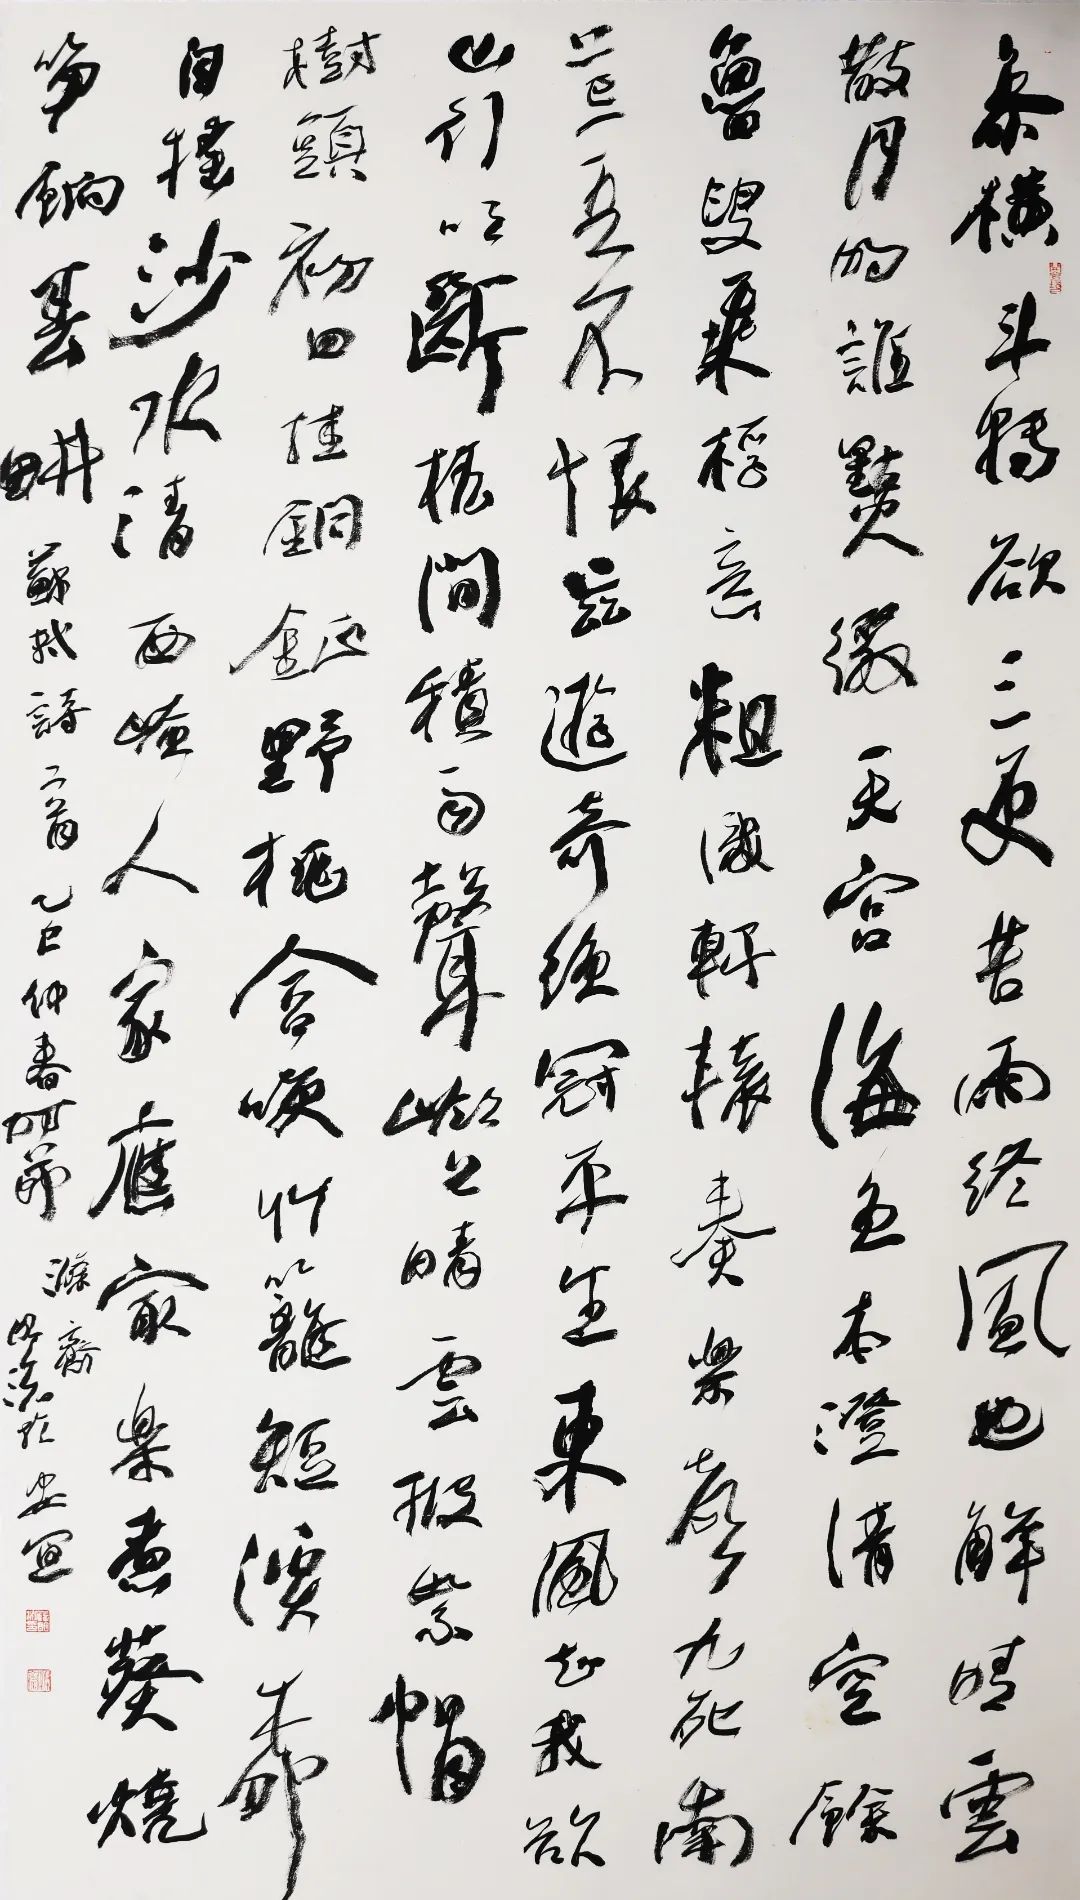 參橫斗轉欲三更苦雨終風也解晴雲
散月明誰點綴天容海色本澄清空餘
魯叟乘桴意粗識軒轅奏樂聲九死南
荒吾不恨茲遊奇絕冠平生東風知我欲
山行吹斷檐間積雨聲嶺上晴雲披絮帽
樹頭初日挂銅鉦野桃含笑竹籬短溪柳
自搖沙水清西崦人家應最樂煮葵燒
筍餉春耕 蘇軾詩二首 乙巳仲春